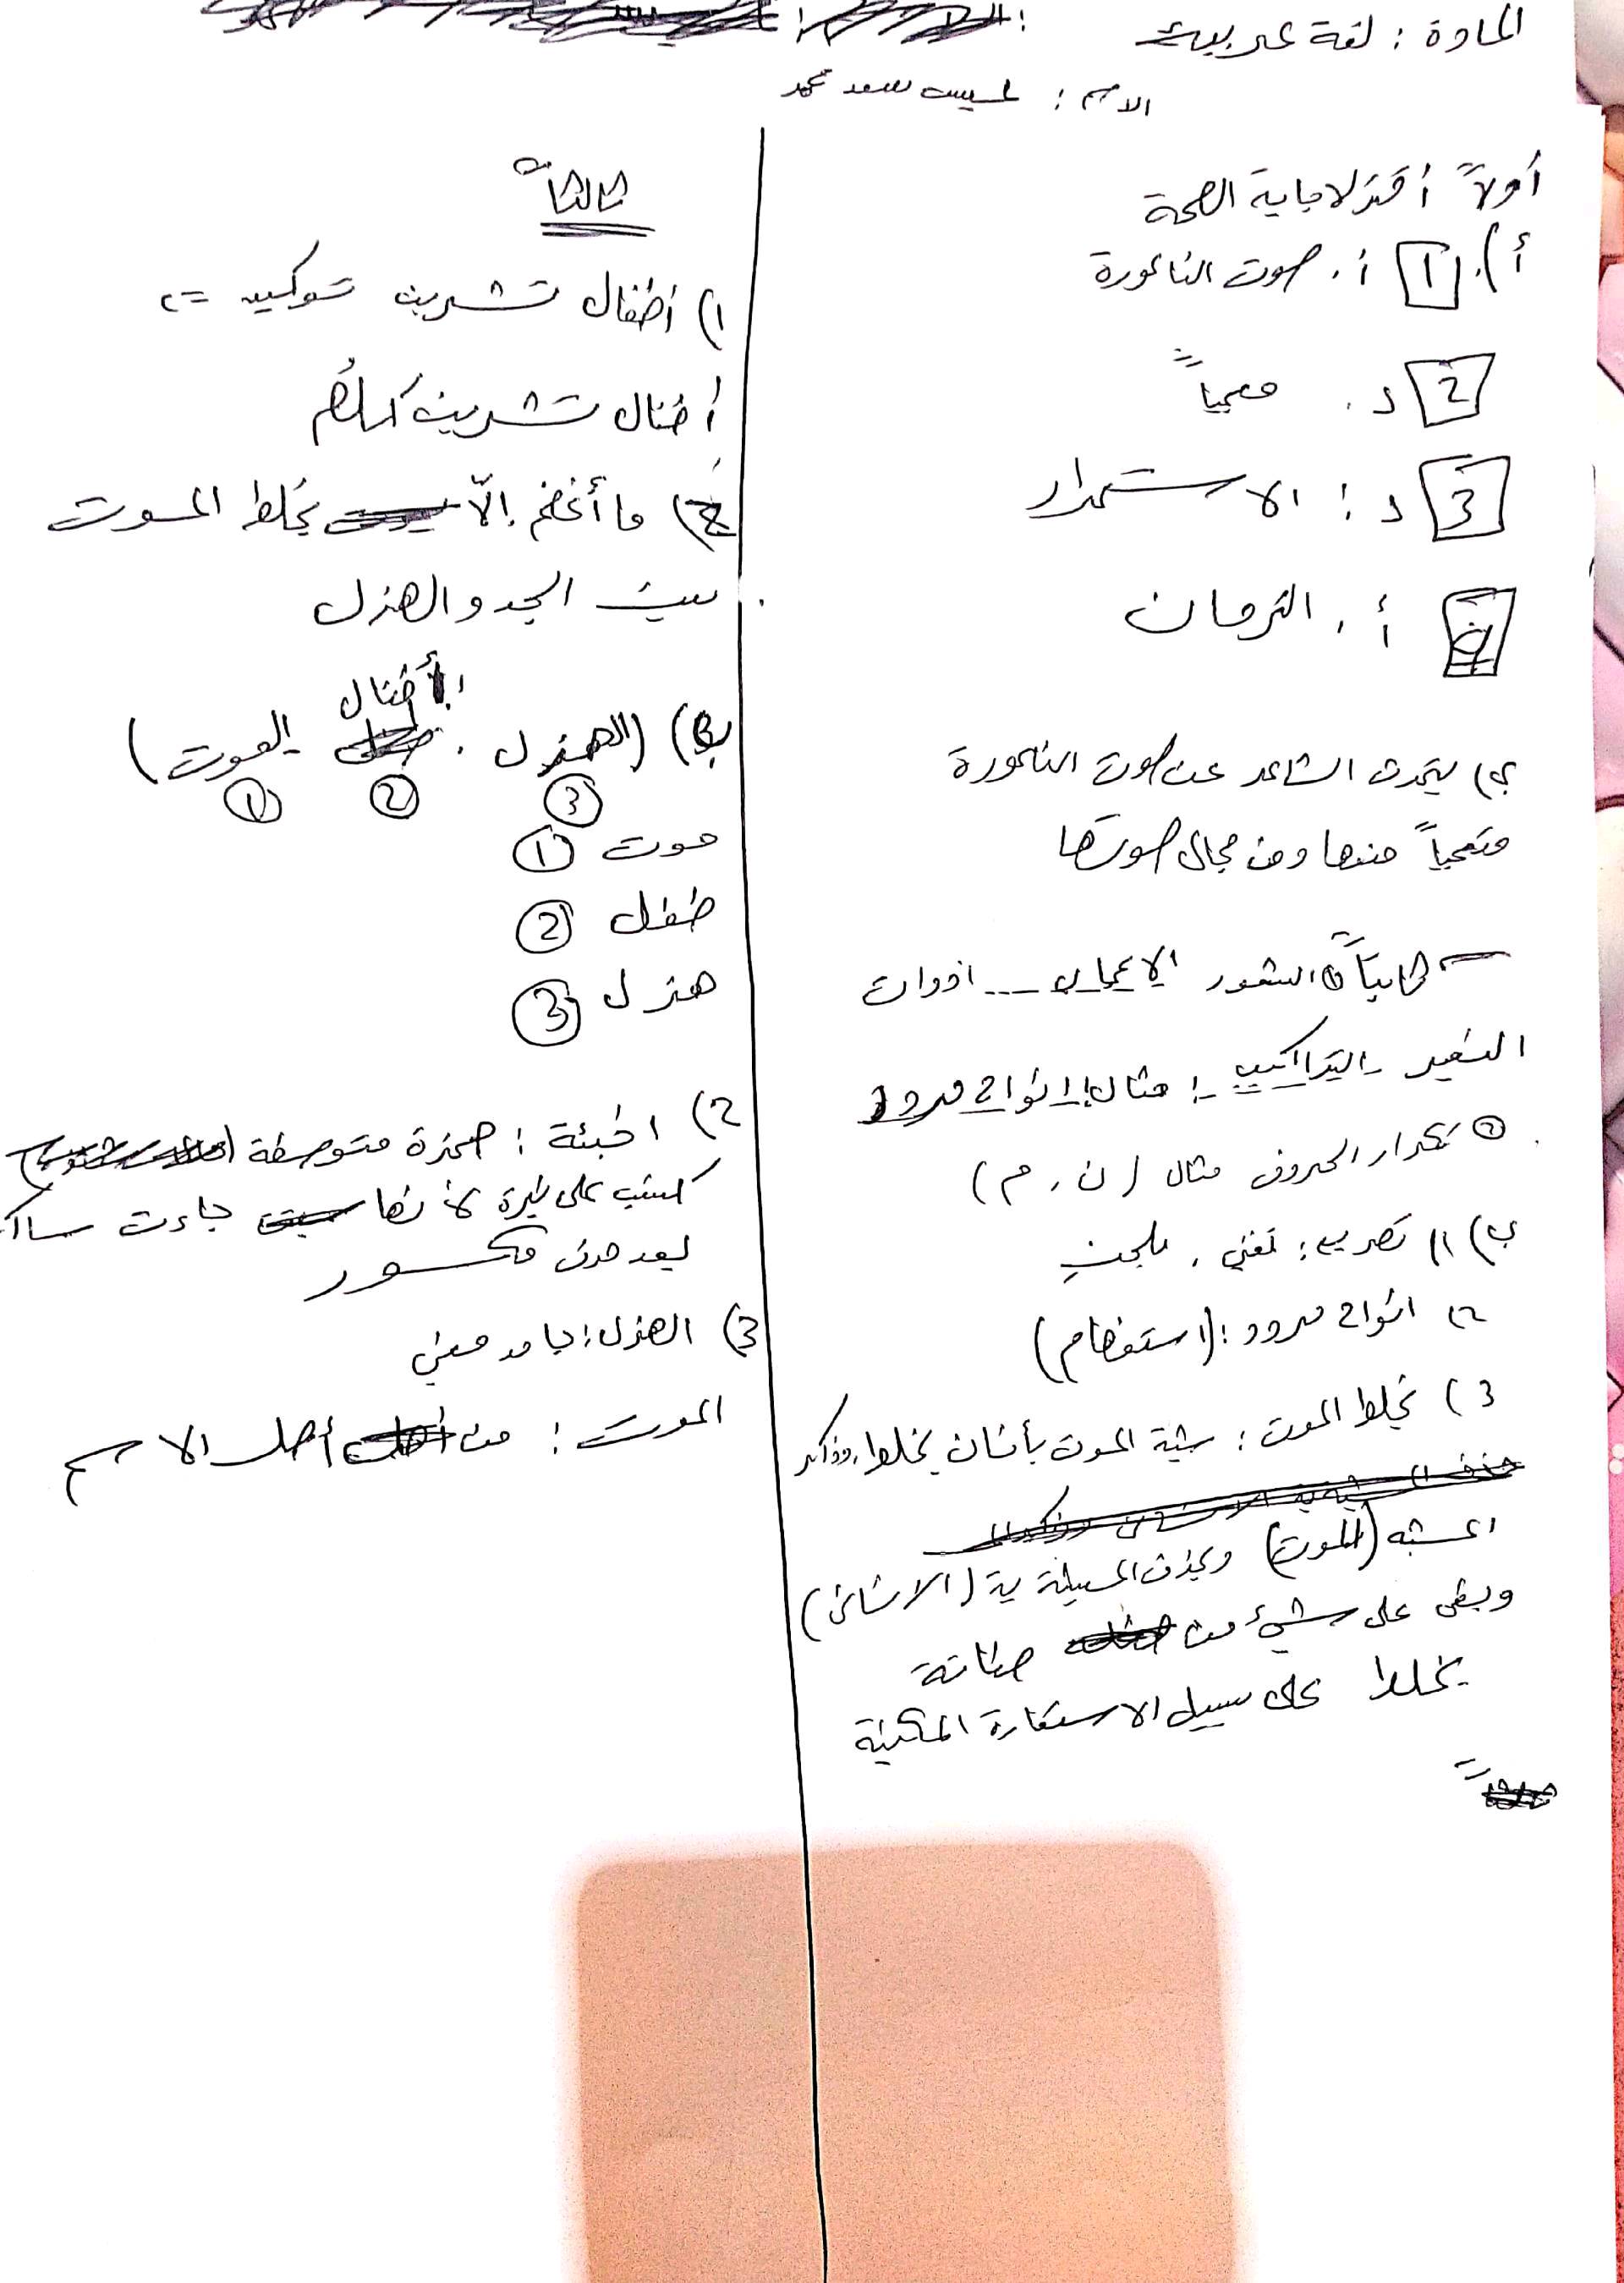 المادة : لغة عربية
الاسم : سعد محمد
أولاً أختر لاجابة الصحة
أ) . 1 أ. صوت الناعورة
2 د. معجباً
3 د : الاستمرار
أ . الترمان
ب) يتحدث الشاعر عن صوت الناعورة
متعجباً منها ومن جمال صوتها
ثانياً ① الشعور الاعجاب ... ادوات
التعبير التراكيب : مثال: انواح مرود
② تكرار الحروف مثال (ن . م)
ب) 1) تصريع : تغني .
2) انواح مرود : (استفهام)
3) يخلط الموت : شبة الموت بأنسان يخلط , وذكر
المشبه (الموت) وحذف المشبة بة (الانسان)
وبقى على شيء من صفاتة
يخلط على سبيل الاستعارة المكنية
ثالثاً
1) أطفال تشرين توكيد =>
أطفال تشرين كلهُم
2) ما أفهم إلّا يخلط الموت
بين الجد والهزل
ب) (الهزل . أطفال الموت)
③ ② ①
موت ①
طفل ②
هزل ③
2) اخبئة : همزة متوسطة
كتبت على نبرة لأنها جاءت
بعد حرف مكسور
3) الهزل : جامد معنى
الموت : من أصل الاسم